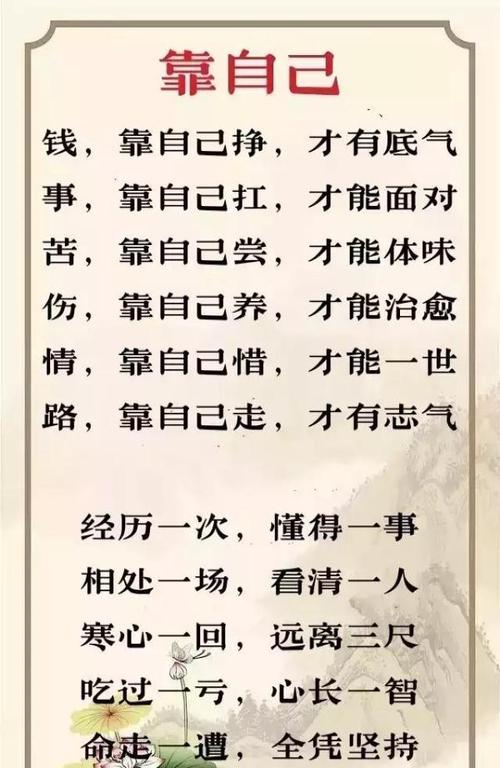 靠自己
钱，靠自己挣，才有底气
事，靠自己扛，才能面对
苦，靠自己尝，才能体味
伤，靠自己养，才能治愈
情，靠自己惜，才能一世
路，靠自己走，才有志气
经历一次，懂得一事
相处一场，看清一人
寒心一回，远离三尺
吃过一亏，心长一智
命走一遭，全凭坚持